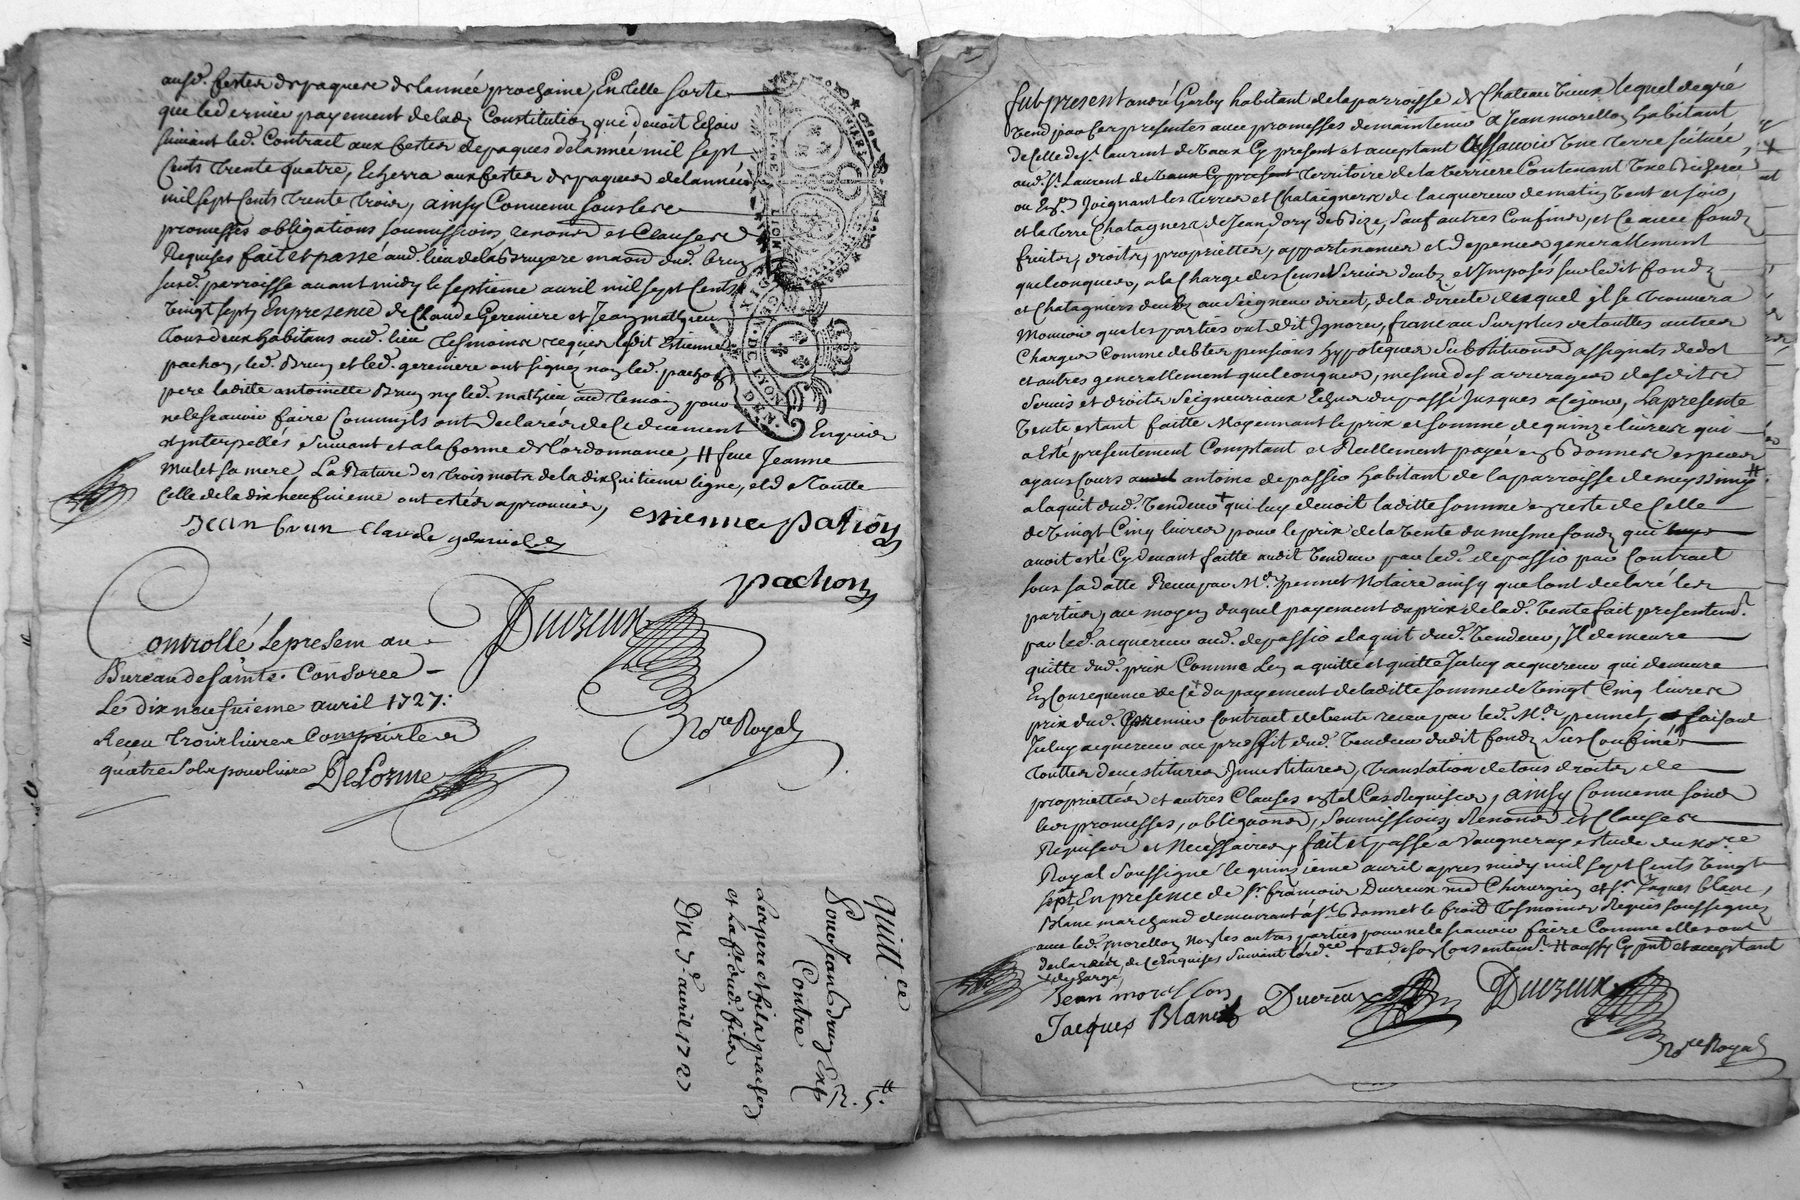 ausd. festes de paques de lannée prochaine, En telle sorte
que led. dernier payement de lad. Constitution qui devoit Echoir
suivant led. Contract aux festes de paques de lannée mil sept
Cents trente quatre, Echerra aux festes de paques de lannée
mil sept Cents trente trois, ainsy Convenu sous les
promesses obligations soumissions renons et Clauses
Requises fait et passé aud. lieu de la Bruyere maon dud. brun
susd. parroisse avant midy le septieme avril mil sept Cents
vingt sept, En presence de Claude Gereniere et Jean mathieu
tous deux habitans aud. lieu tesmoins requis ledit Estienne
pachon, led. Brun et led. gereniere ont signez non led. pachon
pere laditte antoinette Brun ny led. mathieu temoin pour
ne le scavoir faire Comm ils ont declarés de ce duement Enquis
et interpellés suivant et a la forme de l'ordonnance, # feue Jeanne
mulet sa mere, La Rature des trois mots de la dixhuitieme ligne, et de toutte
Celle de la dixneufvieme ont estés aprouvées,
Jean brun Claude
estienne pation
pachon
Controllé le presem au
Bureau de sainte Consorce
Le dixneufvieme avril 1727:
Receu trois livres Compris les
quatre sols pour livre DeLorme
Ducreux
Nore Royal
GEN. DE LYON
LION
quitt.ce
Pour Jean brun
Contre
Les pere et fils pachon
et la fe. dud. fils
Du 7e. avril 1727
R. 5#.
fut present andré Gorby habitant de la parroisse de Chateau vieux lequel de gré
vend par ces presentes avec promesses de maintenir a Jean morellon habitant
de Celle de St. laurent de vaux Cy present et aceptant Assavoir Une terre située
aud. St. Laurent de vaux Cy present territoire de la verriere Contenant
ou Enn. Joignant les terres et Chataigneres de lacquereur de matin vent et soir,
et la terre Chatagnere de Jean de bize, sauf autres Confins, et ce avec fonds
fruits, droits, proprietter, appartenances et dependces generallement
quelconques, a la Charge des Cens et servis deubz et Imposés sur ledit fondz
et Chatagniers deubz au seigneur direct, de la directe duquel il se trouvera
Mouvoir que les parties ont dit Ignorer, franc au surplus de touttes autres
Charges Comme debtes pensions hypoteques substitutions assignats de dot
et autres generallement quelconques, mesme des arrerages desdits
servis et droits seigneuriaux Echus du passé Jusques a ce jour, La presente
vente estant faitte Moyennant le prix et somme de quinze livres qui
a Eté presentement Comptant et Reellement payée en bonnes especes
ayans Cours a antoine depassio habitant de la parroisse de messimy #
a laquit dud. vendeur + qui luy devoit laditte somme en reste de Celle
de vingt Cinq livres pour le prix de la vente du mesme fondz qui
avoit esté Cy devant faitte audit vendeur par led. depassio par Contract
sous sa datte Receu par Me. pennet Notaire ainsy que lont declaré les
parties, au moyen duquel payement du prix de lad. vente fait presentemt.
par led. acquereur aud. depassio a laquit dud. vendeur, Il demeure
quitte dud. prix Comme Len a quitté et quitte Jcluy acquereur qui demeure
En Consequence de Ce du payement de laditte somme de vingt Cinq livres
prix dud. premier Contract de vente receu par led. Me. pennet, faisant
Jcluy acquereur au proffit dud. vendeur dudit fondz sus Confiné
touttes devestitures Jnvestitures, translation de tous droits de
proprietter et autres Clauses en tel Cas Requises, ainsy Convenu sous
les promesses, obligaons, soumissions Renons et Clauses
Requises et Necessaires, fait et passé a Vaugneray estude du Nore
Royal soussigné le quinzieme avril apres midy mil sept Cents vingt
sept, En presence de Sr. françois Ducreux me Chirurgien et Sr. Jaques blanc,
Blanc marchand demeurant a St. Bonnet le froid tesmoins Requis soussignez
avec led. morellon Non les autres parties pour ne le scavoir faire Comme elles ont
declarées, de ce Enquises suivant lordce. + et de son Consentemt. # aussy Cy pnt et acceptant
Jean morellon
Jacques Blanc
Ducreux
Ducreux
Nore Royal